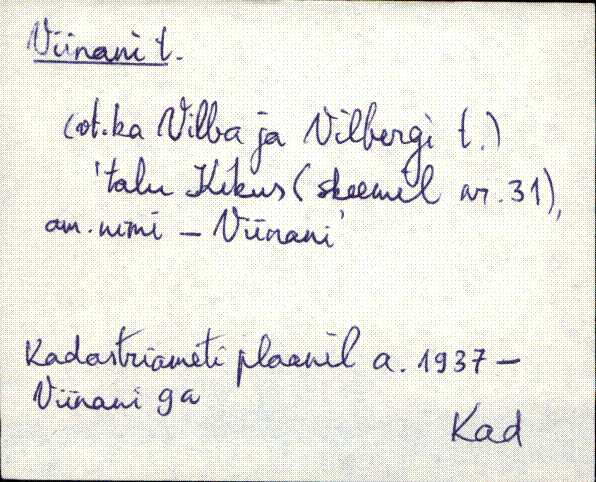 Viinani t.
(vt. ka Vilba ja Vilbergi t.)
'talu Kikus (skeemil nr. 31),
am. nimi – Viinani'
Kadastriameti plaanil a. 1937 –
Viinani ga
Kad